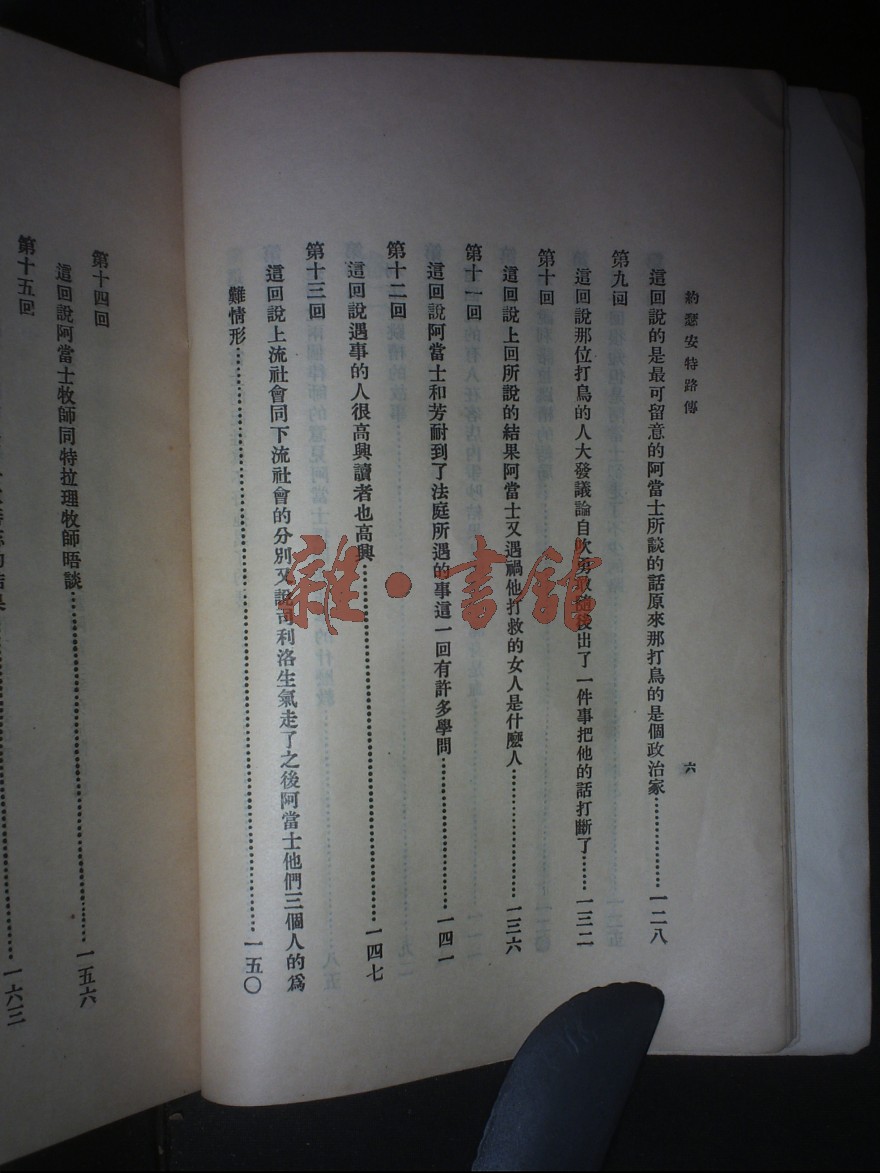 約瑟安特路傳
六
這回說的是最可留意的阿當士所談的話原來那打鳥的是個政治家……………一二八
第九回
這回說那位打鳥的人大發議論自吹勇敢隨後出了一件事把他的話打斷了……一三二
第十回
這回說上回所說的結果阿當士又遇禍他打救的女人是什麼人……………………一三六
第十一回
這回說阿當士和芳耐到了法庭所遇的事這一回有許多學問……………………一四一
第十二回
這回說遇事的人很高興讀者也高興……………………………………………一四七
第十三回
這回說上流社會同下流社會的分別又說司利洛生氣走了之後阿當士他們三個人的為
難情形……………………………………………………………………一五〇
第十四回
這回說阿當士牧師同特拉理牧師晤談……………………………………一五六
第十五回
結果……………………………………一六三
雜·書館